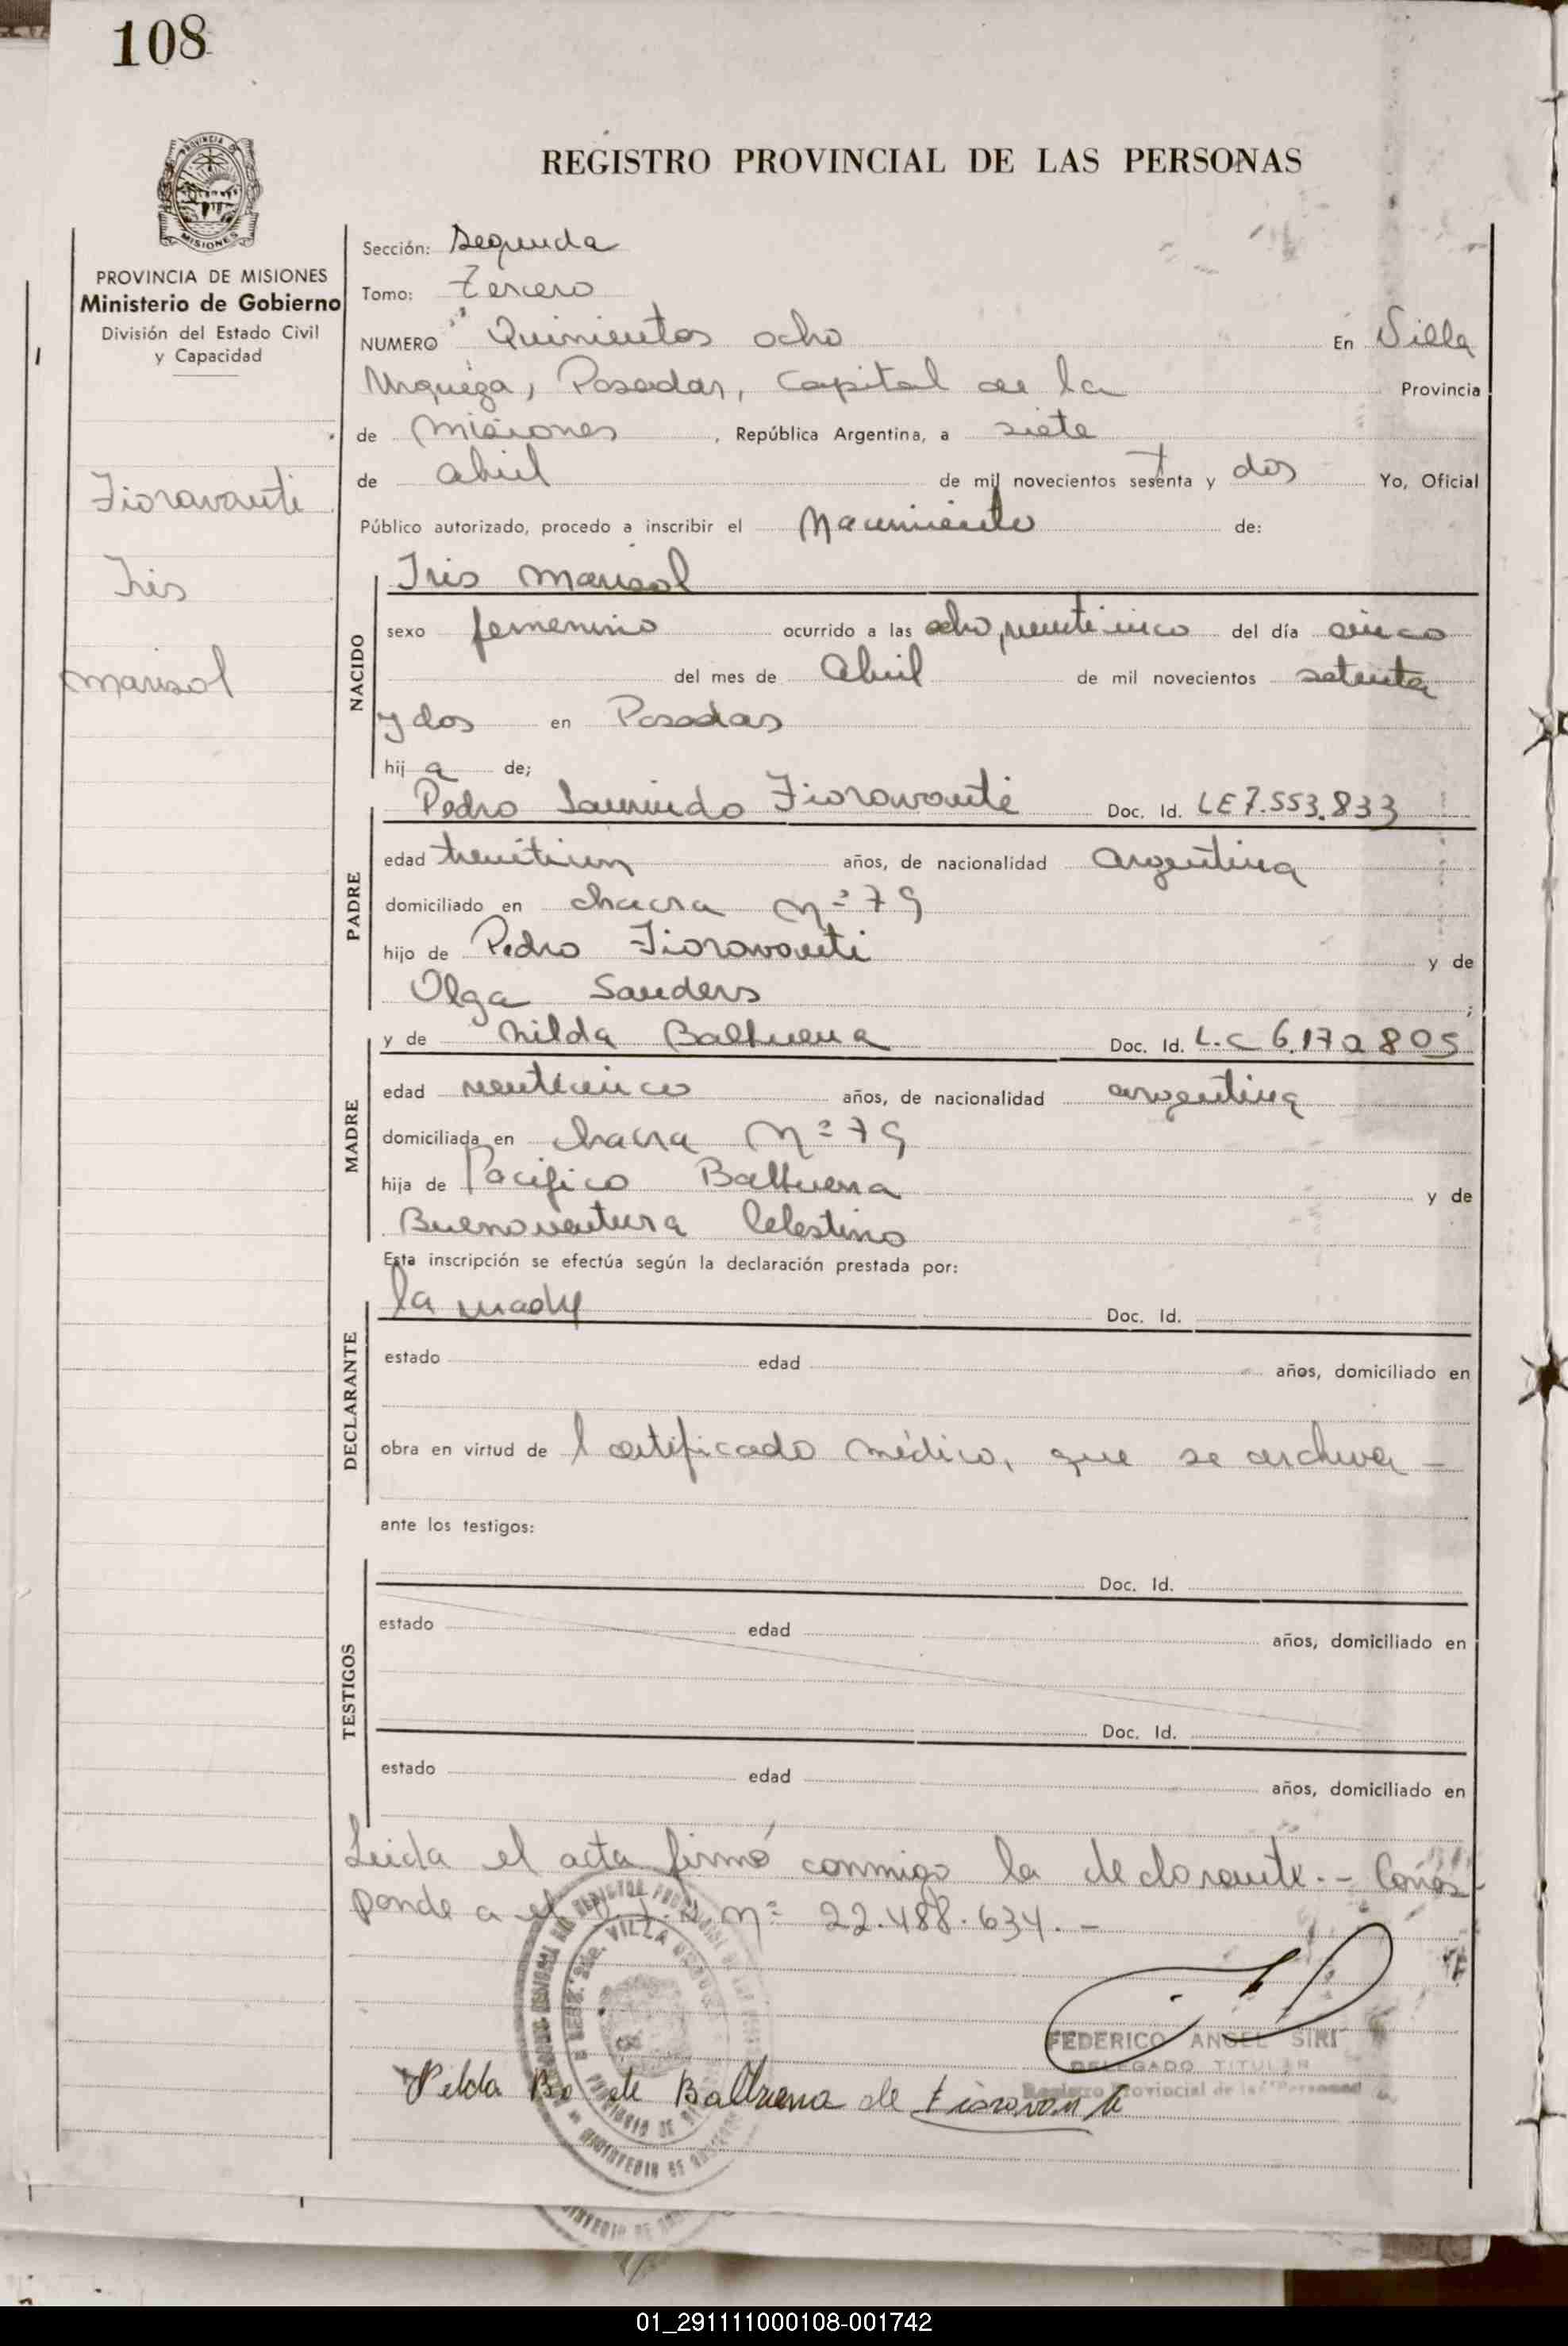 108
REGISTRO PROVINCIAL DE LAS PERSONAS
PROVINCIA DE MISIONES
Ministerio de Gobierno
División del Estado Civil
y Capacidad
Fioravanti
Iris
Marisol
Sección: Segunda
Tomo: Tercero
NUMERO Quinientos ocho En Villa
Urquiza, Posadas, Capital de la Provincia
de Misiones, República Argentina, a siete
de abril de mil novecientos setenta y dos Yo, Oficial
Público autorizado, procedo a inscribir el Nacimiento de:
NACIDO
Iris Marisol
sexo femenino ocurrido a las ocho, veinticinco del día cinco
del mes de Abril de mil novecientos setenta
y dos en Posadas
hija de;
PADRE
Pedro Fioravanti Doc. Id. LE 7.553.833
edad años, de nacionalidad argentina
domiciliado en chacra Nº 79
hijo de Pedro Fioravanti y de
Olga Sanders;
MADRE
y de Nilda Balbuena Doc. Id. L.C 6.170805
edad veinticinco años, de nacionalidad argentina
domiciliada en chacra Nº 79
hija de Pacifico Balbuena y de
Buenaventura Celestino
Esta inscripción se efectúa según la declaración prestada por:
DECLARANTE
la madre Doc. Id.
estado edad años, domiciliado en
obra en virtud de l certificado médico, que se archiva -
ante los testigos:
TESTIGOS
Doc. Id.
estado edad años, domiciliado en
Doc. Id.
estado edad años, domiciliado en
Leida el acta firmó conmigo la declarante.- Corres-
ponde a el Nº 22.488.634.-
FEDERICO ANGEL SIRI
DELEGADO TITULAR
Registro Provincial de las Personas
Nelda Balbuena de Fioravanti
01_291111000108-001742